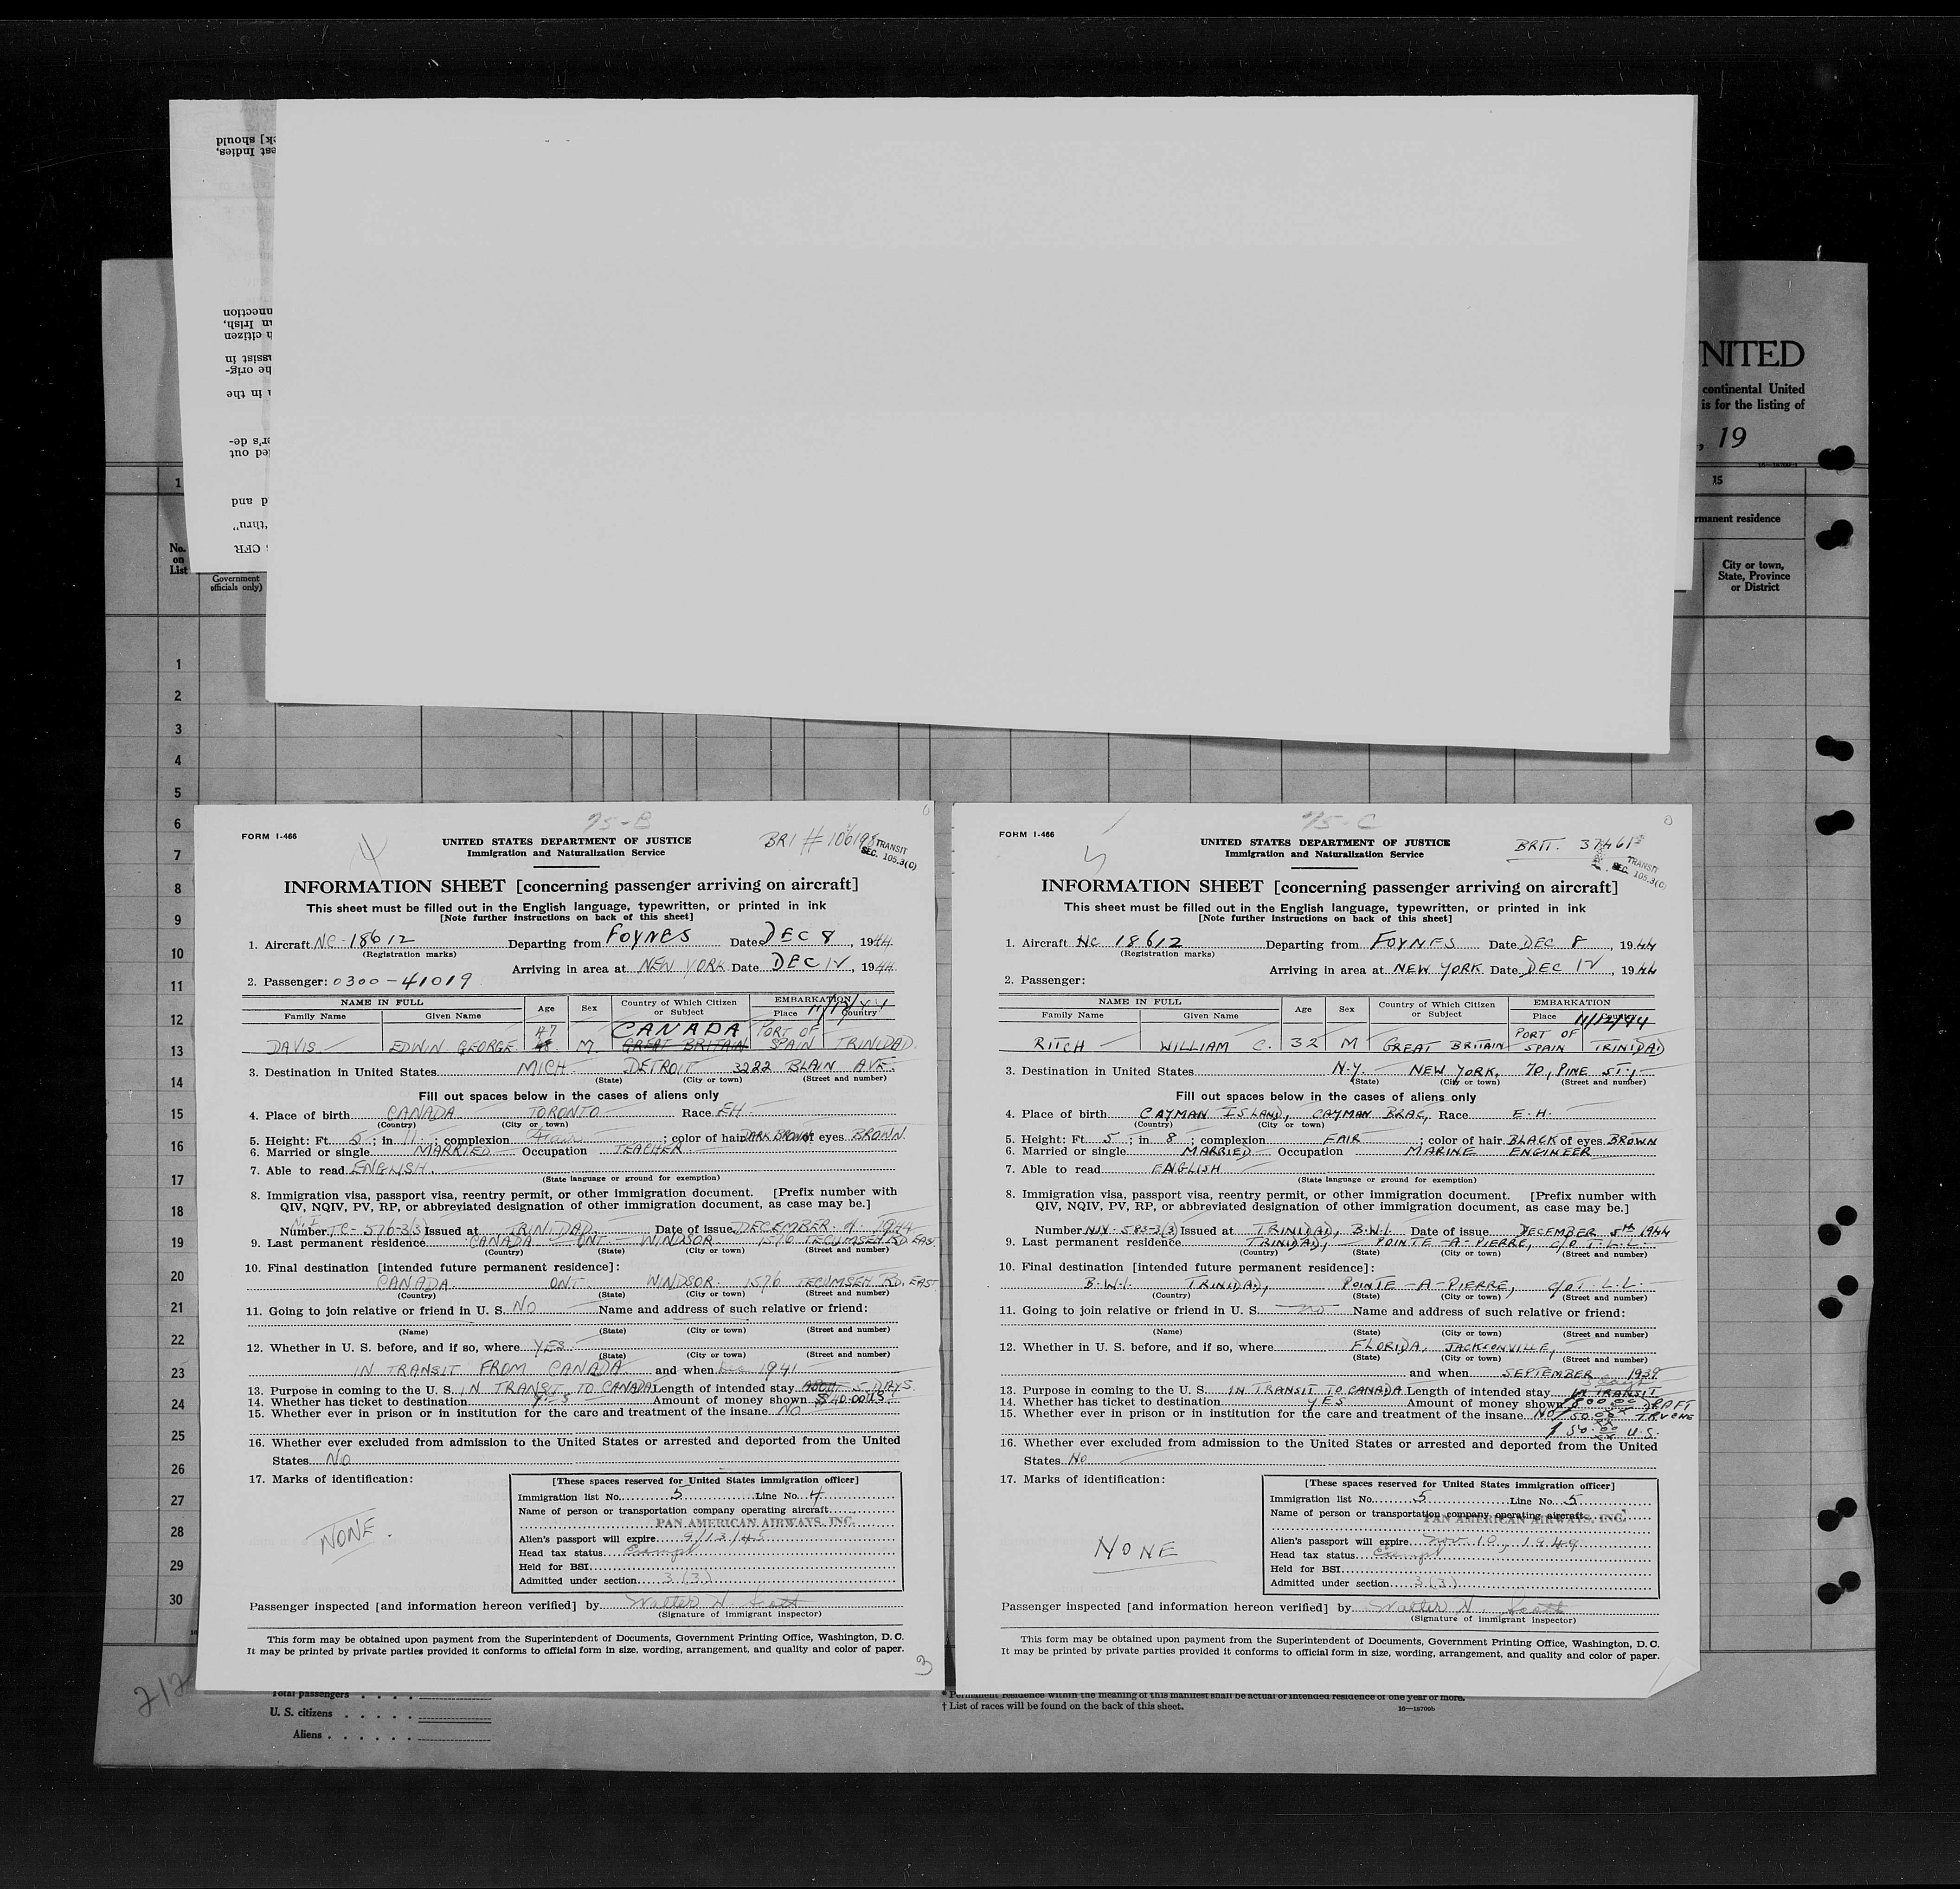 NITED
continental United
is for the listing of
, 19
15
rmanent residence
City or town,
State, Province
or District
No.
on
List
Government
officials only)
1
2
3
4
5
6
7
8
9
10
11
12
13
14
15
16
17
18
19
20
21
22
23
24
25
26
27
28
29
30
75-B
FORM I-466
UNITED STATES DEPARTMENT OF JUSTICE
Immigration and Naturalization Service
TRANSIT
SEC. 105.3(C)
INFORMATION SHEET [concerning passenger arriving on aircraft]
This sheet must be filled out in the English language, typewritten, or printed in ink
[Note further instructions on back of this sheet]
1. Aircraft NC-18612 Departing from FOYNES Date DEC 8, 1944
(Registration marks)
Arriving in area at NEW YORK Date DEC 12, 1944
2. Passenger: 0300-41019
NAME IN FULL Age Sex Country of Which Citizen or Subject EMBARKATION
Family Name Given Name Place Country
11/12/44
47 CANADA PORT OF
DAVIS EDWIN GEORGE M. GREAT BRITAIN SPAIN TRINIDAD.
3. Destination in United States MICH. DETROIT 3222 BLAIN AVE.
(State) (City or town) (Street and number)
Fill out spaces below in the cases of aliens only
4. Place of birth CANADA TORONTO Race EH.
(Country) (City or town)
5. Height: Ft. 5; in 11; complexion ; color of hair DARK BROWN of eyes BROWN.
6. Married or single MARRIED Occupation TEACHER.
7. Able to read ENGLISH.
(State language or ground for exemption)
8. Immigration visa, passport visa, reentry permit, or other immigration document. [Prefix number with
QIV, NQIV, PV, RP, or abbreviated designation of other immigration document, as case may be.]
Number TC-576-3(3) Issued at TRINIDAD Date of issue DECEMBER 1944
9. Last permanent residence CANADA ONT. WINDSOR 1576 TECUMSEH RD EAST.
(Country) (State) (City or town) (Street and number)
10. Final destination [intended future permanent residence]:
CANADA. ONT. WINDSOR. 1576 TECUMSEH RD. EAST
(Country) (State) (City or town) (Street and number)
11. Going to join relative or friend in U. S. NO Name and address of such relative or friend:
(Name) (State) (City or town) (Street and number)
12. Whether in U. S. before, and if so, where YES.
(State) (City or town) (Street and number)
IN TRANSIT FROM CANADA and when 1941
13. Purpose in coming to the U. S. IN TRANSIT TO CANADA Length of intended stay ABOUT 5 DAYS.
14. Whether has ticket to destination YES Amount of money shown $40.00 US.
15. Whether ever in prison or in institution for the care and treatment of the insane NO
16. Whether ever excluded from admission to the United States or arrested and deported from the United
States NO
17. Marks of identification:
NONE.
[These spaces reserved for United States immigration officer]
Immigration list No. 5 Line No. 4
Name of person or transportation company operating aircraft
PAN AMERICAN AIRWAYS, INC.
Alien's passport will expire 9/13/45
Head tax status Exempt
Held for BSI
Admitted under section 3(3)
Passenger inspected [and information hereon verified] by Walter N. Scott
(Signature of immigrant inspector)
This form may be obtained upon payment from the Superintendent of Documents, Government Printing Office, Washington, D. C.
It may be printed by private parties provided it conforms to official form in size, wording, arrangement, and quality and color of paper.
3
75-C
FORM I-466
UNITED STATES DEPARTMENT OF JUSTICE
Immigration and Naturalization Service
BRIT.
TRANSIT
SEC. 105.3(C)
INFORMATION SHEET [concerning passenger arriving on aircraft]
This sheet must be filled out in the English language, typewritten, or printed in ink
[Note further instructions on back of this sheet]
1. Aircraft NC 18612 Departing from FOYNES Date DEC 8, 1944
(Registration marks)
Arriving in area at NEW YORK Date DEC 12, 1944
2. Passenger:
NAME IN FULL Age Sex Country of Which Citizen or Subject EMBARKATION
Family Name Given Name Place Country
11/12/44
PORT OF
RITCH WILLIAM C. 32 M GREAT BRITAIN SPAIN TRINIDAD
3. Destination in United States N.Y. NEW YORK, 70, PINE ST.,
(State) (City or town) (Street and number)
Fill out spaces below in the cases of aliens only
4. Place of birth CAYMAN ISLAND, CAYMAN BRAC, Race E.H.
(Country) (City or town)
5. Height: Ft. 5; in 8; complexion FAIR; color of hair BLACK of eyes BROWN
6. Married or single MARRIED Occupation MARINE ENGINEER
7. Able to read ENGLISH
(State language or ground for exemption)
8. Immigration visa, passport visa, reentry permit, or other immigration document. [Prefix number with
QIV, NQIV, PV, RP, or abbreviated designation of other immigration document, as case may be.]
Number 583-3(3) Issued at TRINIDAD, B.W.I. Date of issue DECEMBER 5TH 1944
9. Last permanent residence TRINIDAD, POINTE-A-PIERRE, c/o T.L.L.
(Country) (State) (City or town) (Street and number)
10. Final destination [intended future permanent residence]:
B.W.I. TRINIDAD, POINTE-A-PIERRE, c/o T.L.L.
(Country) (State) (City or town) (Street and number)
11. Going to join relative or friend in U. S. no Name and address of such relative or friend:
(Name) (State) (City or town) (Street and number)
12. Whether in U. S. before, and if so, where FLORIDA, JACKSONVILLE,
(State) (City or town) (Street and number)
and when SEPTEMBER 1939
13. Purpose in coming to the U. S. IN TRANSIT TO CANADA Length of intended stay IN TRANSIT
14. Whether has ticket to destination YES Amount of money shown DRAFT
15. Whether ever in prison or in institution for the care and treatment of the insane NO
U.S.
16. Whether ever excluded from admission to the United States or arrested and deported from the United
States NO
17. Marks of identification:
NONE
[These spaces reserved for United States immigration officer]
Immigration list No. 5 Line No. 5
Name of person or transportation company operating aircraft
PAN AMERICAN AIRWAYS, INC.
Alien's passport will expire Nov. 10, 1949
Head tax status Exempt
Held for BSI
Admitted under section 3(3)
Passenger inspected [and information hereon verified] by Walter N. Scott
(Signature of immigrant inspector)
This form may be obtained upon payment from the Superintendent of Documents, Government Printing Office, Washington, D. C.
It may be printed by private parties provided it conforms to official form in size, wording, arrangement, and quality and color of paper.
Total passengers
U. S. citizens
Aliens
* Permanent residence within the meaning of this manifest shall be actual or intended residence of one year or more.
† List of races will be found on the back of this sheet.
16—18709b